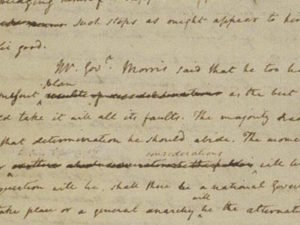 such steps as might appear to
lic good.
Mr. Govr. Morris said that he too ha
plan
as the best
d take it with all its faults. The majority
that determination he should abide. The mome
considerations
will
uestion will be, shall there be a national Gover
will
take place or a general anarchy be the alternat